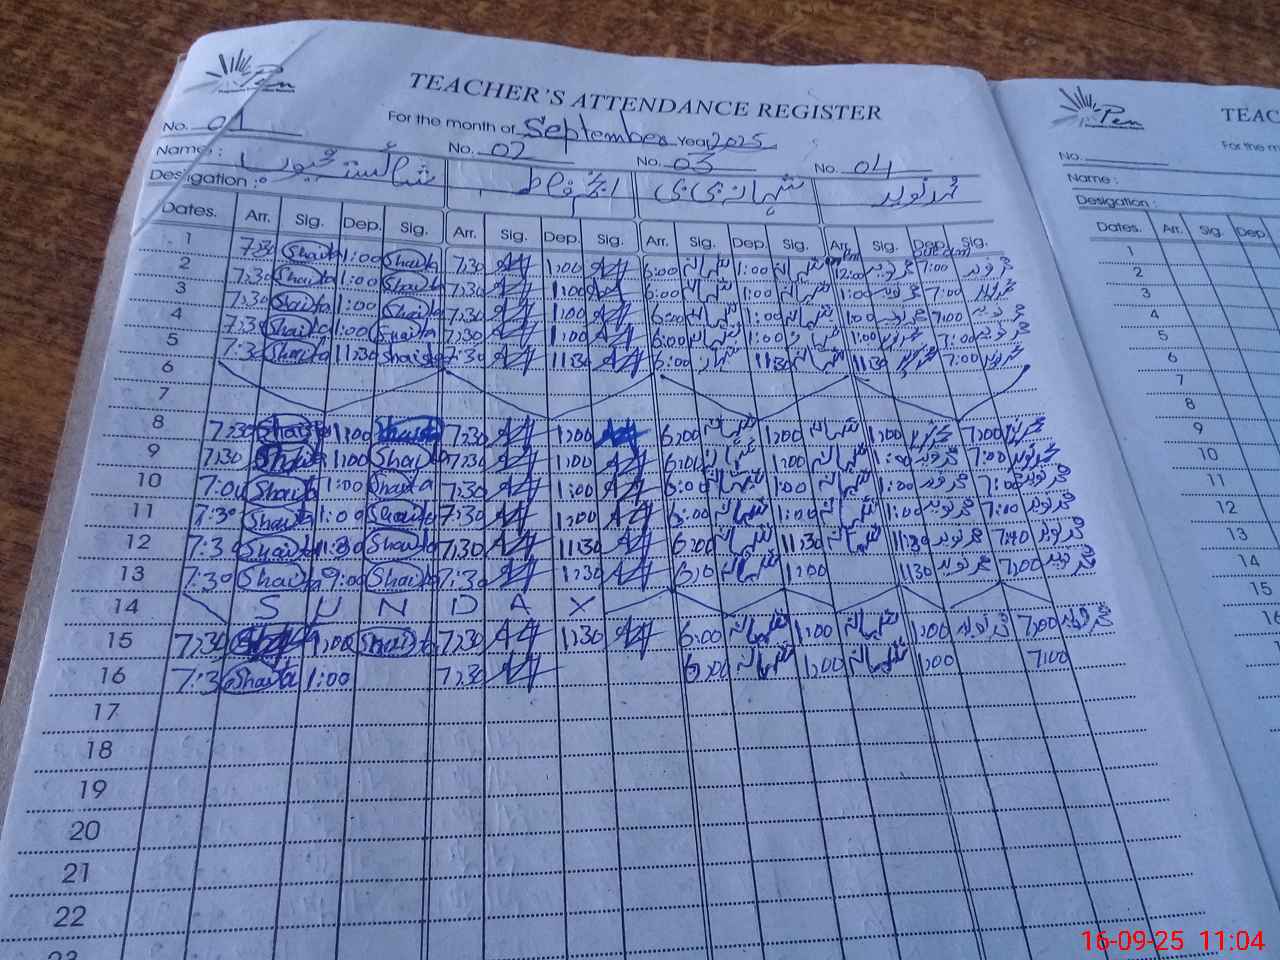 Pen
TEACHER'S ATTENDANCE REGISTER
For the month of September Year 2025
No. 01 No. 02 No. 03 No. 04
Name: شائستہ
Desigation: شہانہ بی بی محمد نوید
Dates. Arr. Sig. Dep. Sig. Arr. Sig. Dep. Sig. Arr. Sig. Dep. Sig. Arr. Sig. Dep. Sig.
1 7:30 Shaista 1:00 Shaista 7:30 1:00 6:00 شہانہ 1:00 شہانہ 12:00 محمد نوید 7:00 محمد نوید
2 7:30 Shaista 1:00 Shaista 7:30 1:00 6:00 شہانہ 1:00 شہانہ 1:00 محمد نوید 7:00 محمد نوید
3 7:30 Shaista 1:00 Shaista 7:30 1:00 6:00 شہانہ 1:00 شہانہ 1:00 محمد نوید 7:00 محمد نوید
4 7:30 Shaista 1:00 Shaista 7:30 1:00 6:00 شہانہ 1:00 شہانہ 1:00 محمد نوید 7:00 محمد نوید
5 7:30 Shaista 11:30 Shaista 7:30 11:30 6:00 شہانہ 11:30 شہانہ 11:30 محمد نوید 7:00 محمد نوید
6
7
8 7:30 Shaista 1:00 Shaista 7:30 1:00 6:00 شہانہ 1:00 شہانہ 1:00 محمد نوید 7:00 محمد نوید
9 7:30 Shaista 1:00 Shaista 7:30 1:00 6:00 شہانہ 1:00 شہانہ 1:00 محمد نوید 7:00 محمد نوید
10 7:00 Shaista 1:00 Shaista 7:30 1:00 6:00 شہانہ 1:00 شہانہ 1:00 محمد نوید 7:00 محمد نوید
11 7:30 Shaista 1:00 Shaista 7:30 1:00 6:00 شہانہ 1:00 شہانہ 1:00 محمد نوید 7:00 محمد نوید
12 7:30 Shaista 11:30 Shaista 7:30 11:30 6:00 شہانہ 11:30 شہانہ 11:30 محمد نوید 7:00 محمد نوید
13 7:30 Shaista 9:00 Shaista 7:30 1:30 شہانہ 1:00 1:30 محمد نوید 7:00 محمد نوید
14 S U N D A Y
15 7:30 1:00 Shaista 7:30 1:30 6:00 شہانہ 1:00 شہانہ 1:00 محمد نوید 7:00 محمد نوید
16 7:3 Shaista 1:00 7:30 6:00 شہانہ 1:00 شہانہ 1:00 7:00
17
18
19
20
21
22
23
Pen
TEAC
For the m
No.
Name :
Desigation :
Dates. Arr. Sig. Dep.
1
2
3
4
5
6
7
8
9
10
11
12
13
14
15
16-09-25 11:04